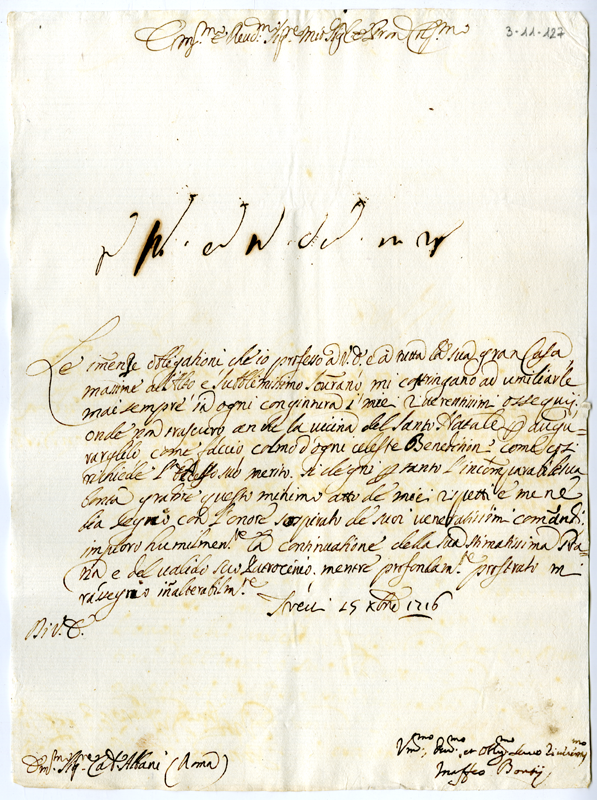 3-11-127
Em.mo e Rev.mo Sig.re Mio Sig.re e Pron Col.mo
Le immense obligationi che io professo a V.E. e a tutta la sua gran Casa
massime all'Alto e Sublimissimo Sourano, mi costringano ad umiliarle
mai sempre in ogni congiuntura i miei riuerentissimi ossequij
onde non trascuro anche la uicina del Santo Natale
uarglelo come faccio colmo d'ogni celeste Benedition, come
richiede l' suo merito. Si degni tanto l'incomparabil sua
bontà gradire questo minimo atto de miei rispetti e me ne
dia segno con l'onore sospirato de suoi veneratissimi comandi
imploro humilmen.te la continuatione della sua stimatissima Gra-
tia e del ualido suo Patrocinio, mentre profondam.te prostrato mi
rassegno inalterabilm.te
25 Xbre 1716
Di V.E.
Em.mo Sig.re Card. Albani (Roma)
Vm.mo, Deu.mo et Obl.mo
Maffeo